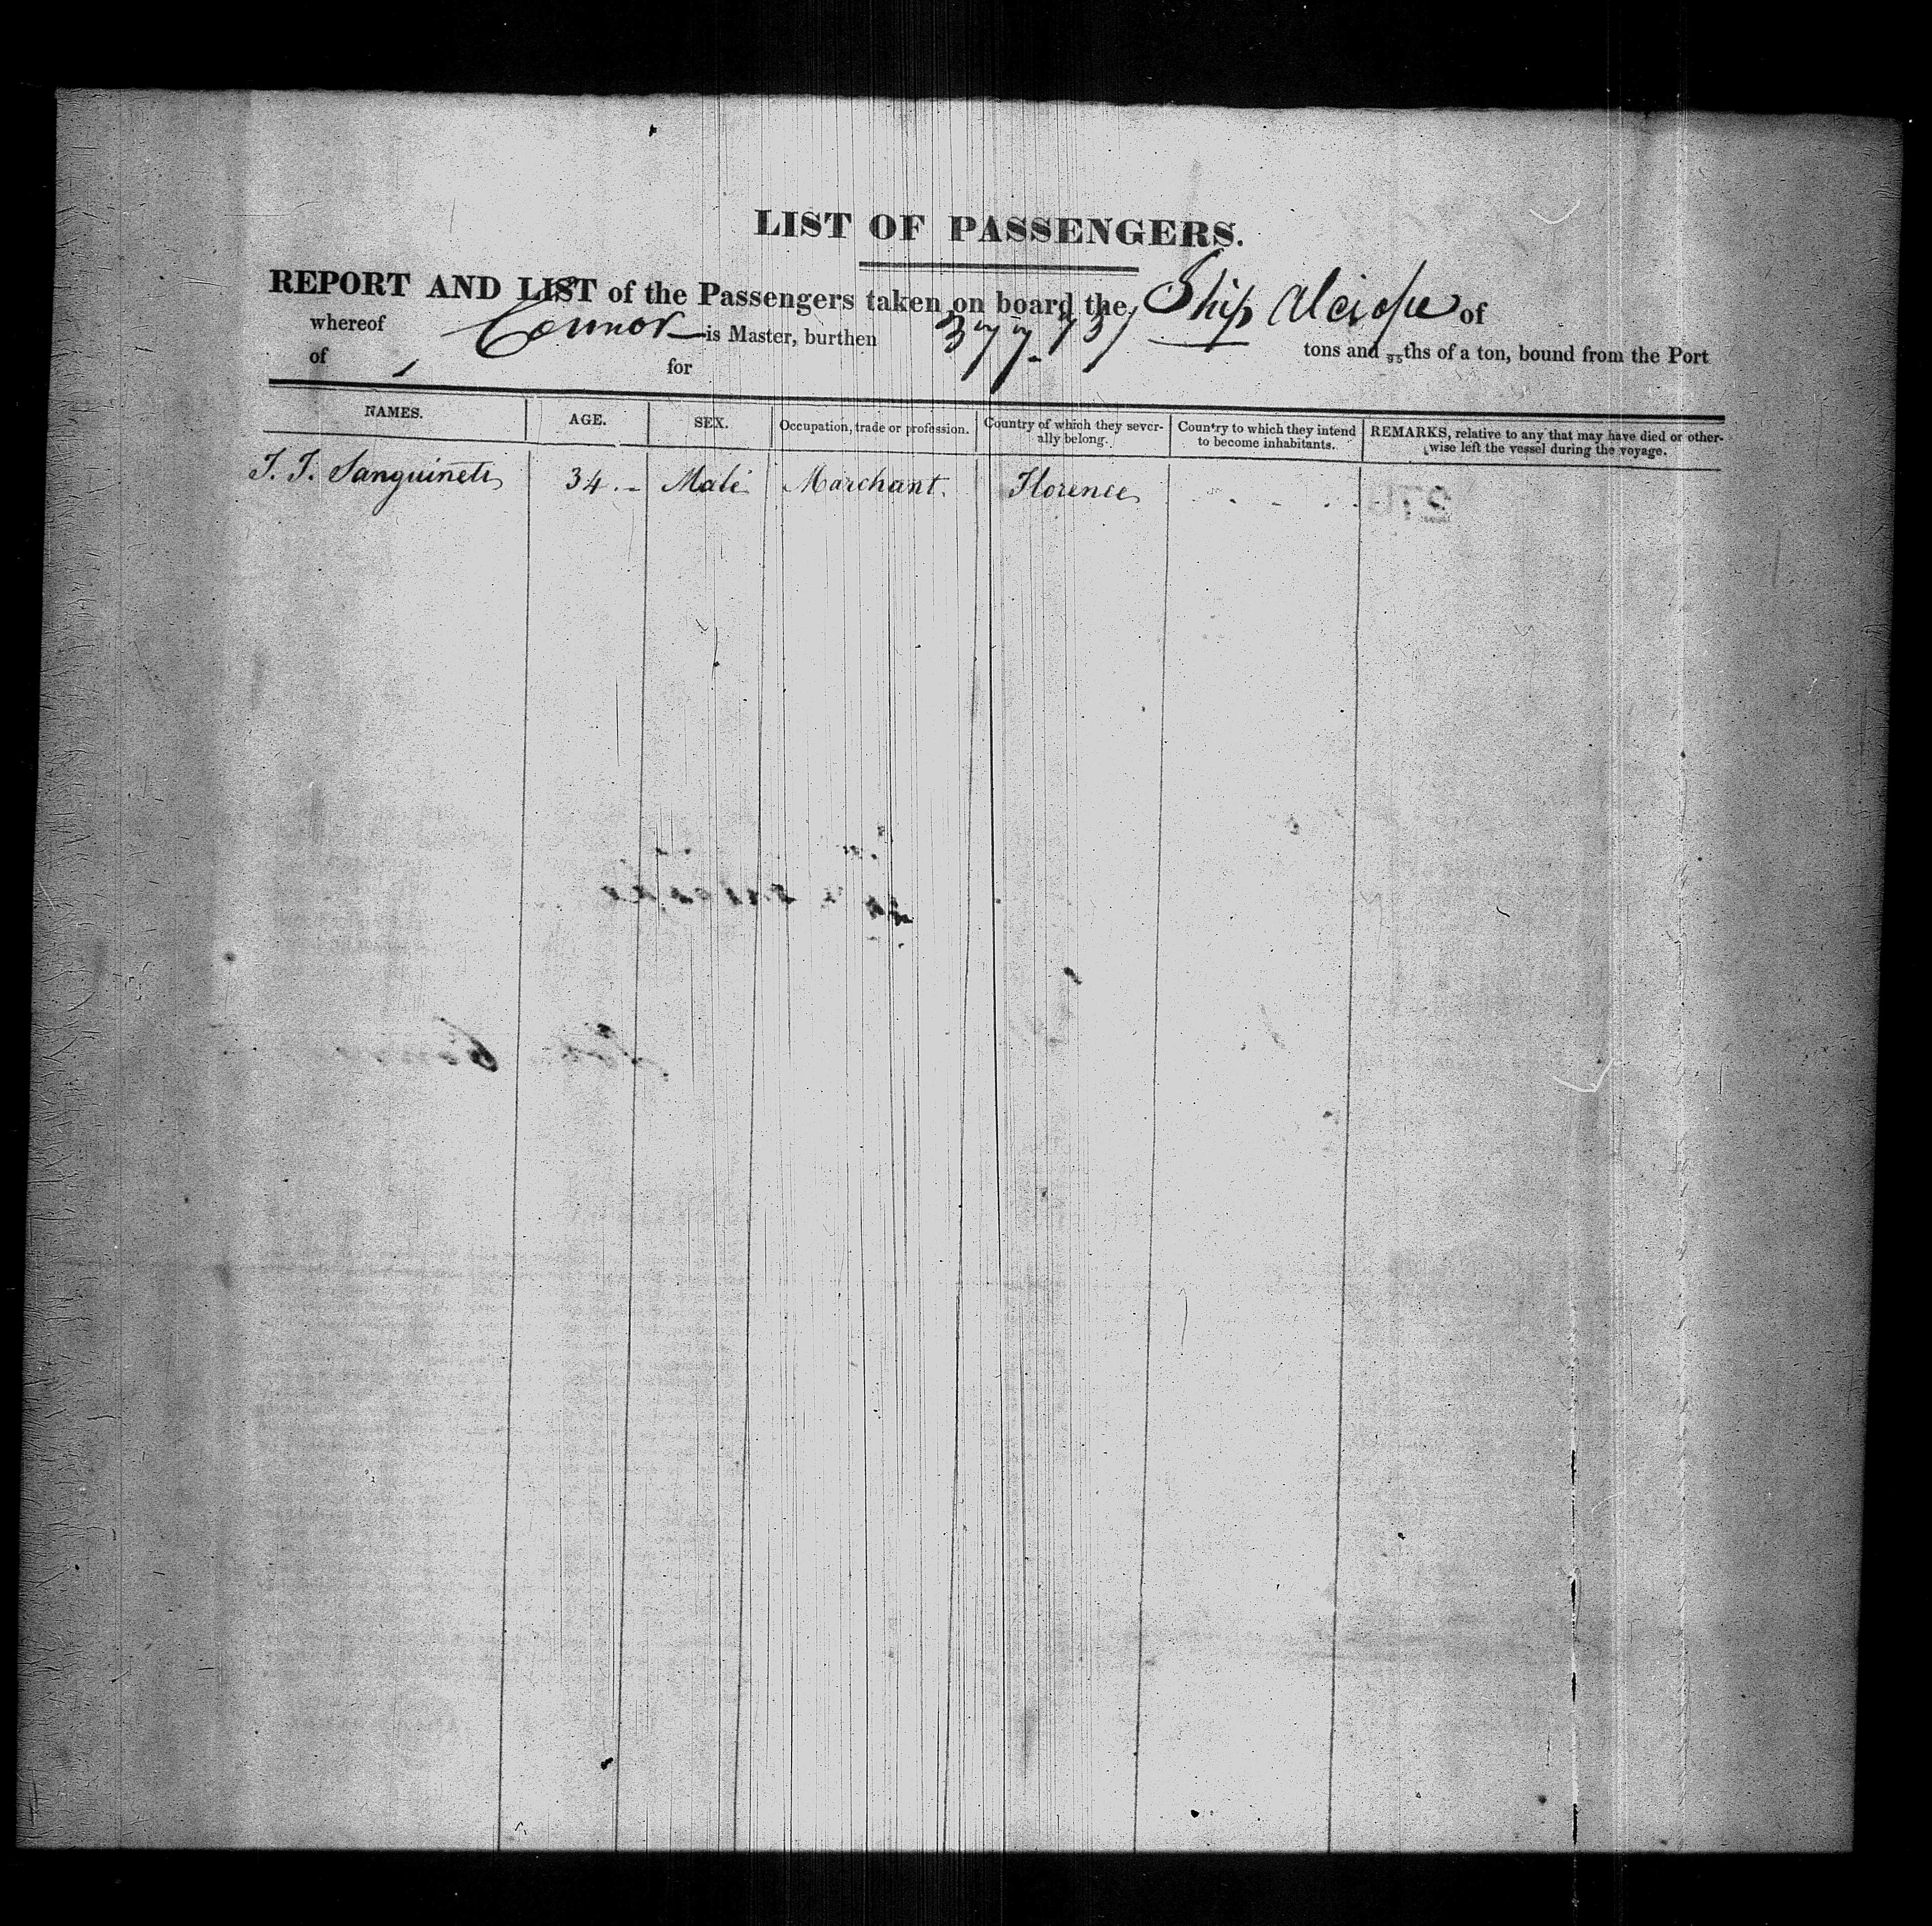 LIST OF PASSENGERS.
REPORT AND LIST of the Passengers taken on board the Ship Alciope of
whereof Connor is Master, burthen 377-73/ tons and 95ths of a ton, bound from the Port
of for
NAMES. AGE. SEX. Occupation, trade or profession. Country of which they severally belong. Country to which they intend to become inhabitants. REMARKS, relative to any that may have died or otherwise left the vessel during the voyage.
J. J. Sanguineti 34.- Male Marchant. Florence